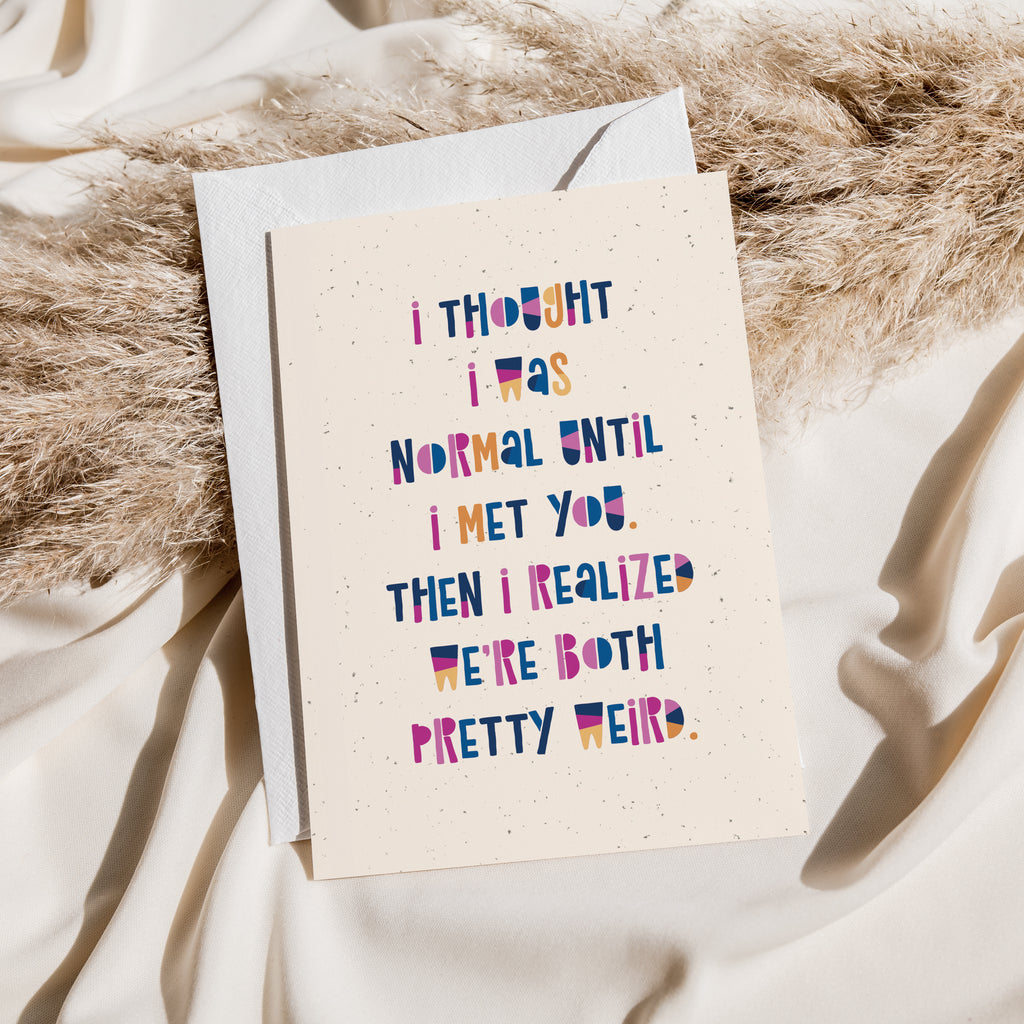 I THOUGHT
I WAS
NORMAL UNTIL
I MET YOU.
THEN I REALIZED
WE'RE BOTH
PRETTY WEIRD.